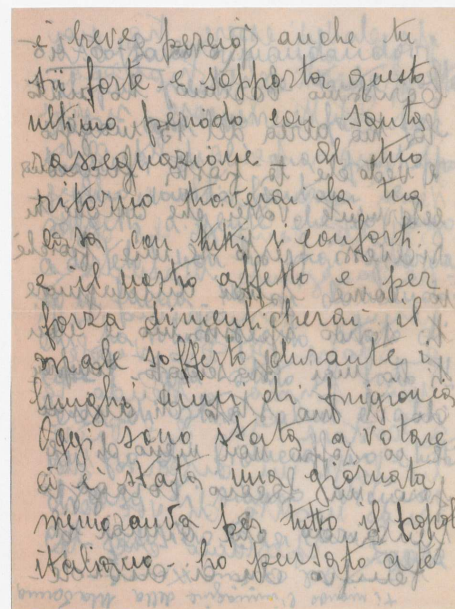 è breve perciò anche tu
sii forte e sopporta questo
ultimo periodo con santa
rassegnazione - Al tuo
ritorno troverai la tua
casa con tutti i conforti
e il nostro affetto e per
forza dimenticherai il
male sofferto durante i
lunghi anni di prigionia
Oggi sono stata a votare
ci è stata una giornata
memoranda per tutto il popol
italiano - ho pensato a te